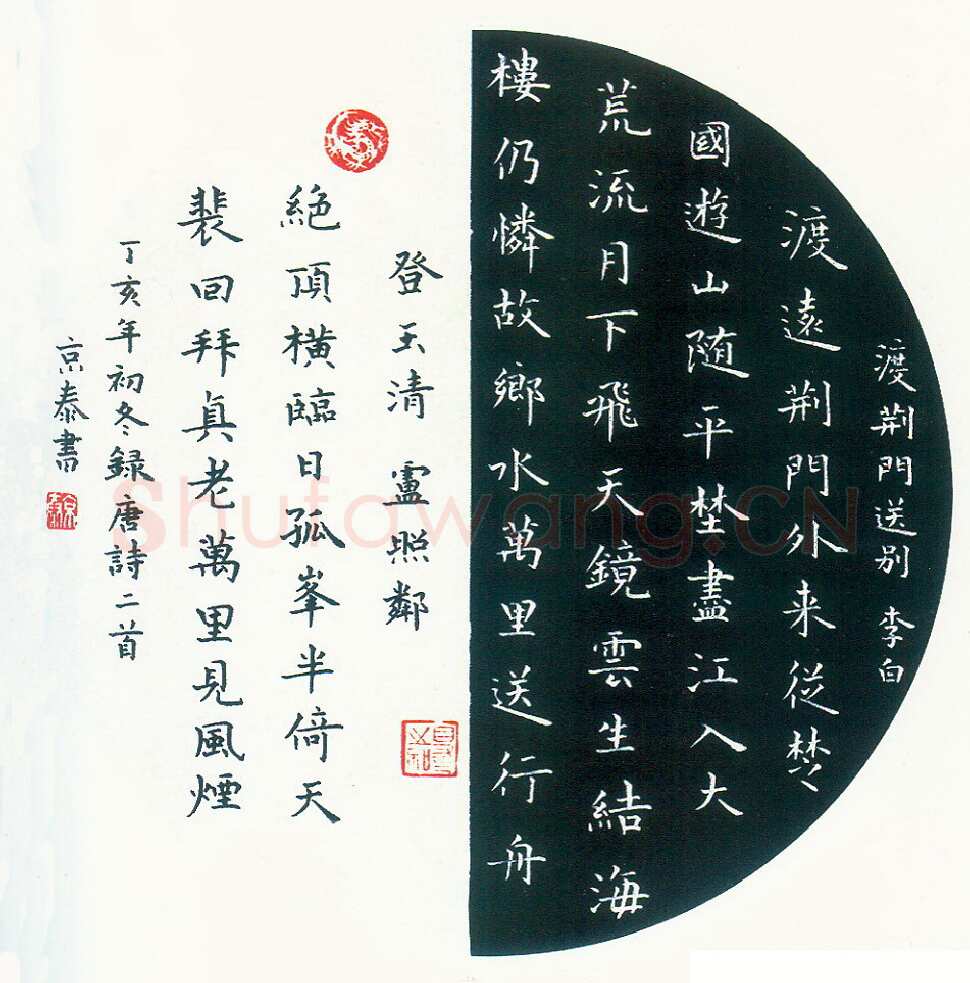 渡荆門送别 李白
渡遠荆門外来従楚
國遊山随平埜盡江入大
荒流月下飛天鏡雲生結海
樓仍憐故鄉水萬里送行舟
登玉清 盧照鄰
絶頂横臨日孤峯半倚天
裴回拜真老萬里見風煙
丁亥年初冬録唐詩二首
京泰書
Shufawang.CN